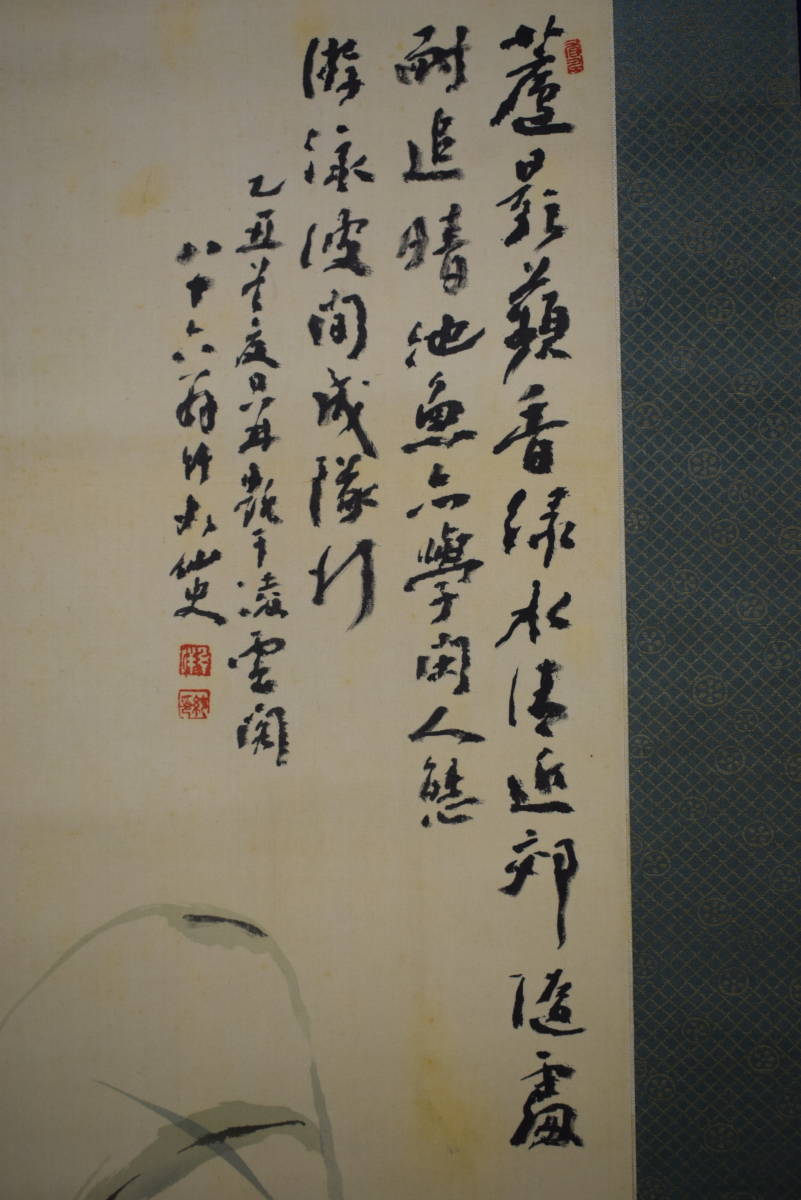 蘆影蘋香緑水清近郊隨處
耐追晴池魚亦學閑人態
游泳波間成隊行
乙丑 夏日 於 凌雲閣
八十六 竹 仙史